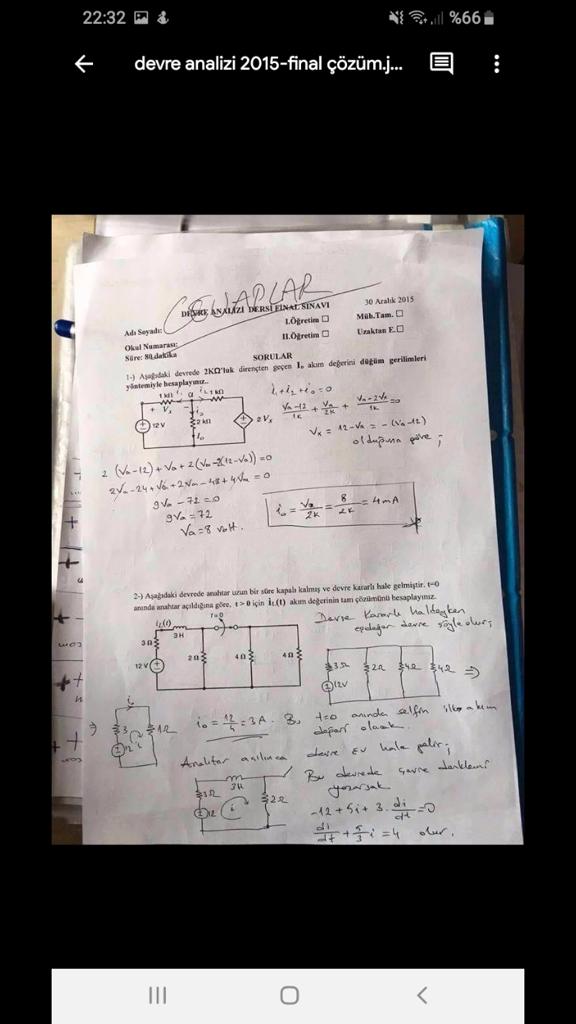 22:32 %66
devre analizi 2015-final çözüm.j...
CEVAPLAR
DEVRE ANALİZİ DERSİ FİNAL SINAVI
30 Aralık 2015
Adı Soyadı:
I.Öğretim □
Müh.Tam. □
Okul Numarası:
II.Öğretim □
Uzaktan E.□
Süre: 80 dakika
SORULAR
1-) Aşağıdaki devrede 2KΩ'luk dirençten geçen Iₒ akım değerini düğüm gerilimleri
yöntemiyle hesaplayınız..
i₁+i₂+iₒ=0
1kΩ i₁ a i₂ 1kΩ
Va-12/1k + Va/2k + Va-2Vx/1k =0
+ Vx - iₒ
12V 2kΩ 2Vx
Iₒ
Vx = 12-Va = -(Va-12)
olduğuna göre;
2 (Va-12) + Va + 2(Va-2(12-Va)) =0
2Va-24+Va+2Va-48+4Va =0
9Va-72=0
9Va=72
Va=8 volt.
iₒ = Va/2k = 8/2k = 4mA
2-) Aşağıdaki devrede anahtar uzun bir süre kapalı kalmış ve devre kararlı hale gelmiştir. t=0
anında anahtar açıldığına göre, t>0 için iL(t) akım değerinin tam çözümünü hesaplayınız.
t=0
iL(t)
3H
3Ω 2Ω 4Ω 4Ω
12V
Devre Kararlı haldeyken
eşdeğer devre şöyle olur;
3Ω 2Ω 4Ω 4Ω ⇒
12V
⇒ i
3 1Ω
12 i
iₒ = 12/4 = 3A. Bu t=0 anında selfin ilk akım
değeri olacak.
Anahtar açılınca devre şu hale gelir;
3H
3Ω 2Ω
12 i
Bu devrede çevre denklemi
yazarsak
-12 + 5i + 3.di/dt =0
di/dt + 5/3 i = 4 olur.